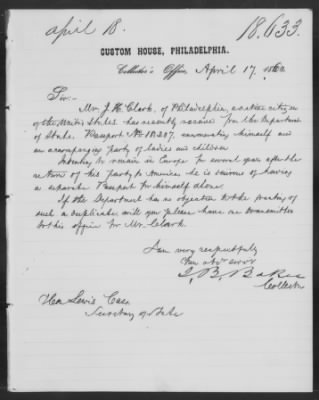 April 18.
18.633.
CUSTOM HOUSE, PHILADELPHIA.
Collector's Office, April 17. 1860
Sir:-
Mr. J. H. Clark, of Philadelphia, a native citizen
of the United States has recently received from the Department
of State, Passport No 18.207. enumerating himself and
an accompanying party of ladies and children
Intending to remain in Europe for several years after the
return of his party to America he is desirous of having
a separate Passport for himself alone.
If the Department has no objection to the granting of
such a duplicate will you please have one transmitted
to this office for Mr. Clark.
I am very respectfully
Your obt servt
J. B. Baker
Collector
Hon Lewis Cass
Secretary of State